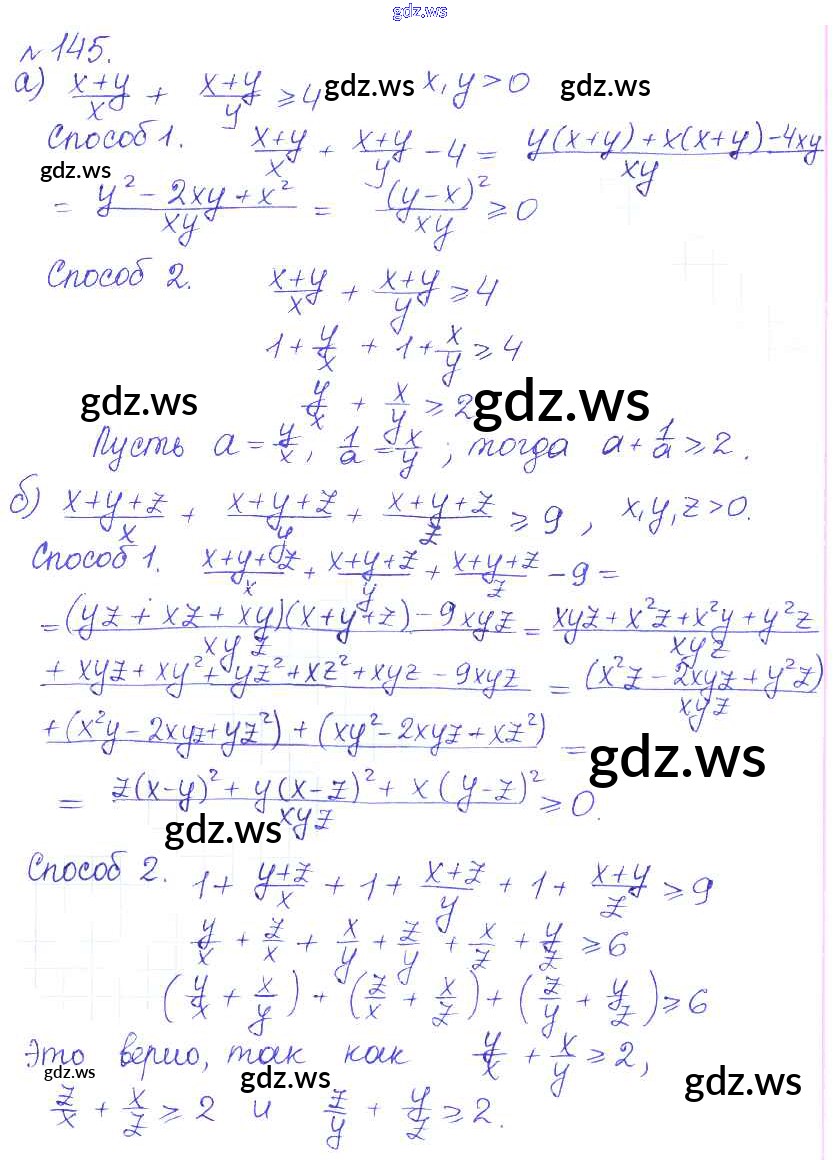 gdz.ws
№145.
а) (x+y)/x + (x+y)/y ⩾ 4 gdz.ws x, y > 0 gdz.ws
Способ 1. (x+y)/x + (x+y)/y − 4 = (y(x+y)+x(x+y)−4xy)/xy
gdz.ws
= (y² − 2xy + x²)/xy = (y−x)²/xy ⩾ 0
Способ 2. (x+y)/x + (x+y)/y ⩾ 4
1 + y/x + 1 + x/y ⩾ 4
gdz.ws y/x + x/y ⩾ 2 gdz.ws
Пусть a = y/x, 1/a = x/y ; тогда a + 1/a ⩾ 2.
б) (x+y+z)/x + (x+y+z)/y + (x+y+z)/z ⩾ 9, x, y, z > 0.
Способ 1. (x+y+z)/x + (x+y+z)/y + (x+y+z)/z − 9 =
= ((yz + xz + xy)(x+y+z) − 9xyz)/xyz = (xyz + x²z + x²y + y²z)/xyz
(+ xyz + xy² + yz² + xz² + xyz − 9xyz) = ((x²z − 2xyz + y²z))/xyz
+ (x²y − 2xyz + yz²) + (xy² − 2xyz + xz²) =
gdz.ws
= (z(x−y)² + y(x−z)² + x(y−z)²)/xyz ⩾ 0.
gdz.ws
Способ 2. 1 + (y+z)/x + 1 + (x+z)/y + 1 + (x+y)/z ⩾ 9
y/x + z/x + x/y + z/y + x/z + y/z ⩾ 6
(y/x + x/y) + (z/x + x/z) + (z/y + y/z) ⩾ 6
Это верно, так как y/x + x/y ⩾ 2,
gdz.ws gdz.ws gdz.ws
z/x + x/z ⩾ 2 и z/y + y/z ⩾ 2.